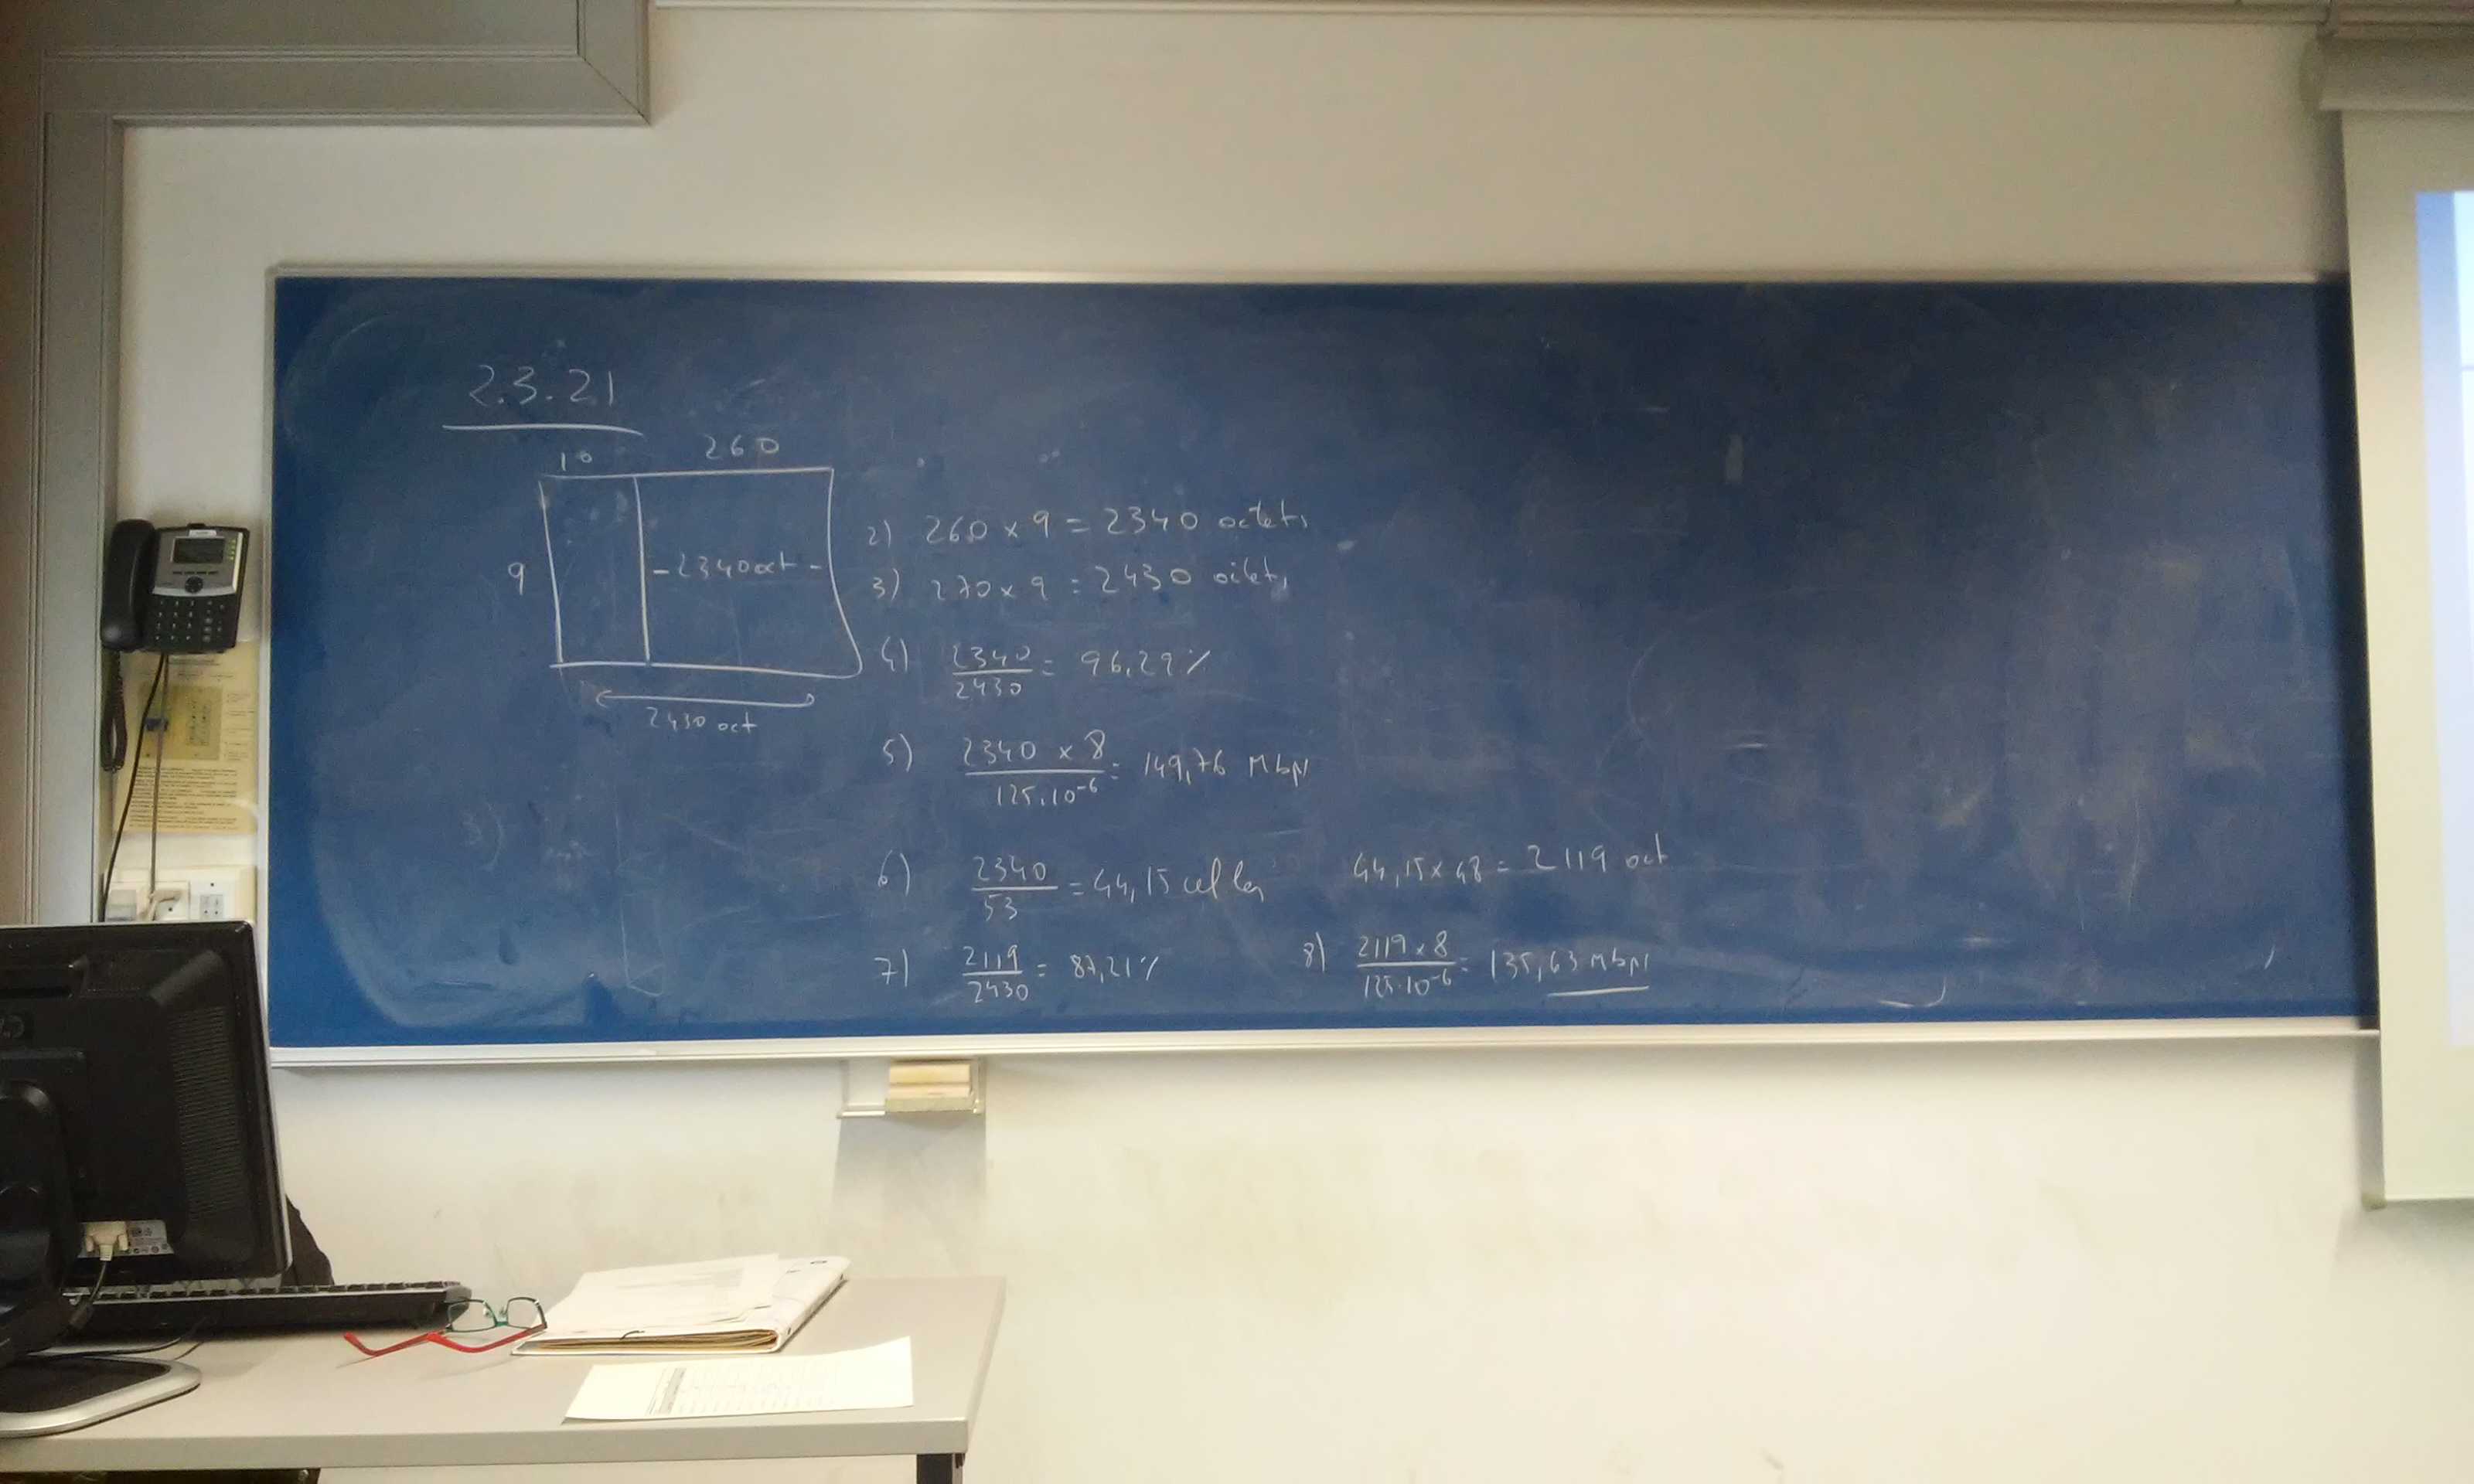 2.3.21
10 260
9
-2340oct-
2430 oct
2) 260 x 9 = 2340 octets
3) 270 x 9 = 2430 octets
4) 2340/2430 = 96,29%
5) 2340 x 8/125.10⁻⁶ = 149,76 Mbps
6) 2340/53 = 44,15 cel·les 44,15 x 48 = 2119 oct
7) 2119/2430 = 87,21%
8) 2119 x 8/125.10⁻⁶ = 135,63 Mbps
3)